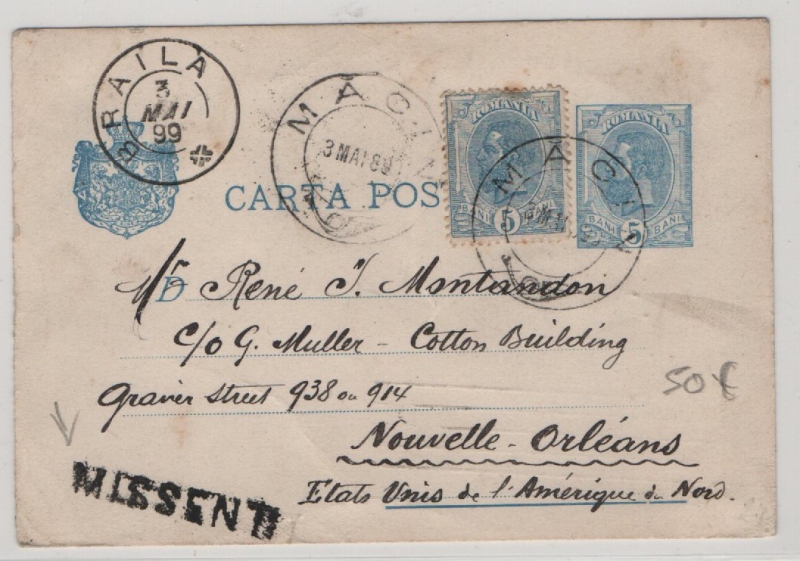 BRAILA
3
MAI
99
MACIN
3 MAI 89
ROMANIA
BANI 5
ROMANIA
BANI 5 BANI
MACIN
CARTA POS
D
Mr René J. Montandon
c/o G. Muller - Cotton Building
Gravier Street 938 ou 914
Nouvelle-Orléans
Etats Unis de l'Amérique du Nord.
MISSENT
50 €